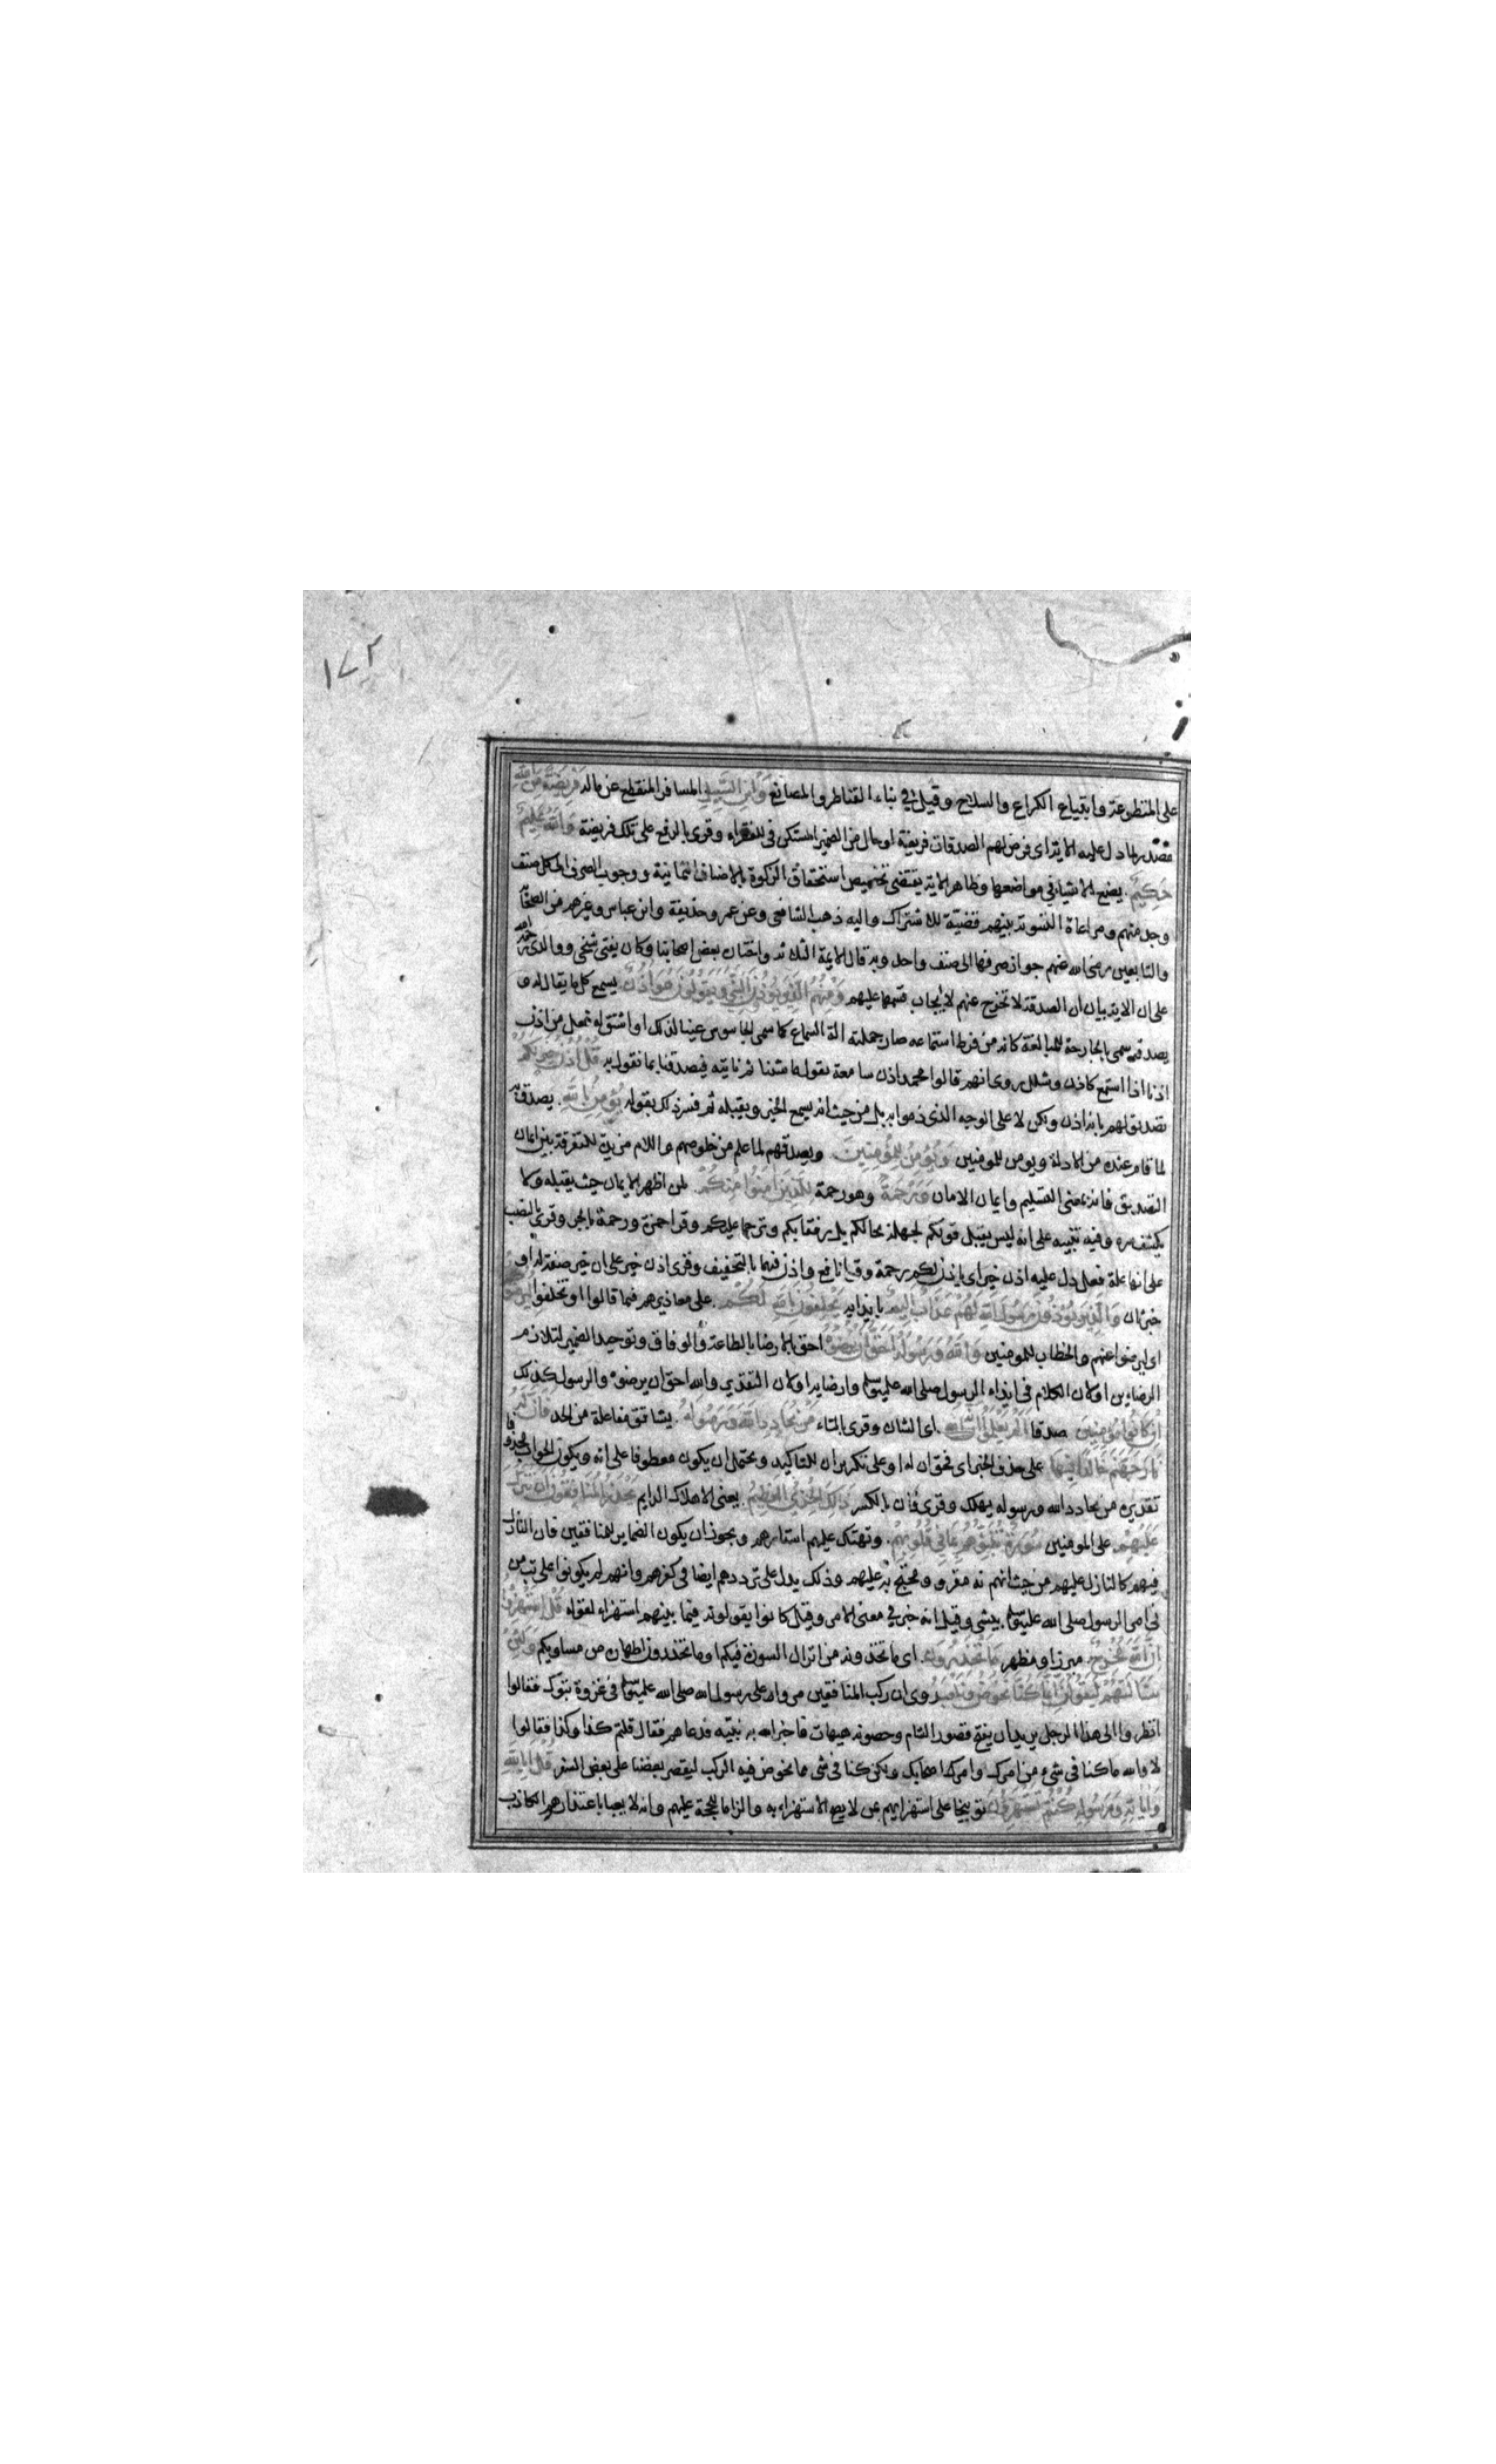 ١٧٢
على المتطوعة وابتياع الكراع والسلاح وقيل في بناء القناطر والمصانع وَابْنِ السَّبِيلِ المسافر المنقطع عن ماله فَرِيضَةً مِنَ اللهِ
مصدر لما دل عليه الاية اى فرض لهم الصدقات فريضة او حال من الضمير المستكن في للفقراء وقرى بالرفع على تلك فريضة وَاللهُ عَلِيمٌ
حَكِيمٌ يضع الاشياء في مواضعها وظاهر الاية يقتضى تخصيص استحقاق الزكوة بالاصناف الثمانية ووجوب الصرف الى كل صنف
وجد منهم ومراعاة التسوية بينهم قضيّة للاشتراك واليه ذهب الشافعى وعن عمر وحذيفة وابن عباس وغيرهم من الصحابة
والتابعين رضى الله عنهم جواز صرفها الى صنف واحد وبه قال الايمة الثلاثة واختار بعض اصحابنا وكان يفتى شيخى ووالدى رحمه الله
على ان الاية بيان ان الصدقة لا تخرج عنهم لا ايجاب قسمها عليهم وَمِنْهُمُ الَّذِينَ يُؤْذُونَ النَّبِيَّ وَيَقُولُونَ هُوَ اُذُنٌ يسمع كل ما يقال له و
يصدقه سمى بالجارحة للمبالغة كانه من فرط استماعه صار جملته الة السماع كما سمى الجاسوس عينا لذلك او اشتق له فعل من اذن
اذنا اذا استمع كانف وشلل روى انهم قالوا محمد اذن سامعة نقول ما شئنا ثم ناتيه فيصدقنا بما نقول قُلْ اُذُنُ خَيْرٍ لَكُمْ
تصديق لهم بانه اذن ولكن لا على الوجه الذى ذموا به بل من حيث انه يسمع الخير ويقبله ثم فسر ذلك بقوله يُؤْمِنُ بِاللهِ يصدق به
لما قام عنده من الادلة ويومن للمومنين وَيُؤْمِنُ لِلْمُؤْمِنِينَ ويصدقهم لما علم من خلوصهم واللام مزيدة للتفرقة بين ايمان
التصديق فانه بمعنى التسليم وايمان الامان وَرَحْمَةٌ وهو رحمة لِلَّذِينَ امَنُوا مِنْكُمْ لمن اظهر الايمان حيث يقبله ولا
يكشف سره وفيه تنبيه على انه ليس يقبل قولكم لجهله بحالكم بل رفقا بكم وترحما عليكم وقرا حمزة ورحمة بالجر وقرى بالنصب
على انها علة فعل دل عليه اذن خير اى ياذن لكم رحمة وقرا نافع واذن فيهما بالتخفيف وقرى اذن خير على ان خير صفة له او
خبر ثان وَالَّذِينَ يُؤْذُونَ رَسُولَ اللهِ لَهُمْ عَذَابٌ اَلِيمٌ بايذايه يَحْلِفُونَ بِاللهِ لَكُمْ على معاذيرهم فيما قالوا او تخلفوا لِيُرْضُوكُمْ
اى ليرضوا عنهم والخطاب للمومنين وَاللهُ وَرَسُولُهُ اَحَقُّ اَنْ يُرْضُوهُ احق بالارضا بالطاعة والوفاق وتوحيد الضمير لتلازم
الرضاءين او لان الكلام في ايذاء الرسول صلى الله عليه وسلم وارضايه او لان التقدير والله احق ان يرضوه والرسول كذلك
اِنْ كَانُوا مُؤْمِنِينَ صدقا اَلَمْ يَعْلَمُوا اَنَّهُ اى الشان وقرى بالتاء مَنْ يُحَادِدِ اللهَ وَرَسُولَهُ يشاقق مفاعلة من الحد فَاَنَّ لَهُ
نَارَ جَهَنَّمَ خَالِدًا فِيهَا على حذف الخبر اى فحق ان له او على تكرير ان للتاكيد ويحتمل ان يكون معطوفا على انه ويكون الجواب محذوفا
تقديره من يحادد الله ورسوله يهلك وقرى فان بالكسر ذَلِكَ الْخِزْيُ الْعَظِيمُ يعنى الاهلاك الدايم يَحْذَرُ الْمُنَافِقُونَ اَنْ تُنَزَّلَ
عَلَيْهِمْ على المومنين سُورَةٌ تُنَبِّئُهُمْ بِمَا فِي قُلُوبِهِمْ وتهتك عليهم استارهم ويجوز ان يكون الضماير للمنافقين فان النازل
فيهم كالنازل عليهم من حيث انهم مقرو ومحتج به عليهم وذلك يدل على ترددهم ايضا في كفرهم وانهم لم يكونوا على بت من
امر الرسول صلى الله عليه وسلم بشى وقيل انه خبر في معنى الامر وقيل كانوا يقولونه فيما بينهم استهزاء لقوله قُلِ اسْتَهْزِؤُا
اِنَّ اللهَ مُخْرِجٌ مبرز او مظهر مَا تَحْذَرُونَ اى ما تحذرونه من انزال السورة فيكم او ما تحذرون اظهاره من مساويكم وَلَئِنْ
سَاَلْتَهُمْ لَيَقُولُنَّ اِنَّمَا كُنَّا نَخُوضُ وَنَلْعَبُ روى ان ركب المنافقين مروا على رسول الله صلى الله عليه وسلم في غزوة تبوك فقالوا
انظروا الى هذا الرجل يريد ان يفتح قصور الشام وحصونه هيهات فاخبر الله به نبيه فدعاهم فقال قلتم كذا وكذا فقالوا
لا والله ما كنا في شىء من امرك وامر اصحابك ولكن كنا في شى مما يخوض فيه الركب ليقصر بعضنا على بعض السفر قُلْ اَبِاللهِ
وَايَاتِهِ وَرَسُولِهِ كُنْتُمْ تَسْتَهْزِؤُنَ توبيخا على استهزايهم بمن لا يصح الاستهزاء به والزاما للحجة عليهم وانه لا يعبا باعتذارهم الكاذب